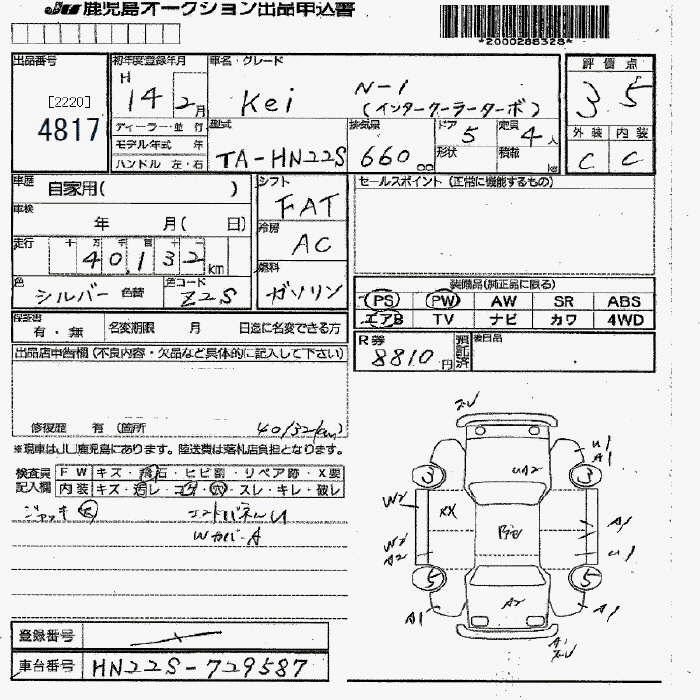 JU 鹿児島オークション出品申込書
*2000288328*
出品番号
[2220]
4817
初年度登録年月
H 14 2月
車名・グレード
Kei N-1
(インタークーラーターボ)
評価点
3.5
ディーラー・並行
モデル年式 年
ハンドル 左・右
型式
TA-HN22S
排気量
660 cc
ドア 5
形状
定員 4人
積載 kg
外装 内装
C C
車歴 自家用( )
車検 年 月( 日)
走行 十万千百十一
40,132 km
色 シルバー 色替
色コード Z2S
シフト
FAT
冷房
AC
燃料
ガソリン
セールスポイント (正常に機能するもの)
装備品(純正品に限る)
PS PW AW SR ABS
エアB TV ナビ カワ 4WD
保証書 有・無
名変期限 月 日迄に名変できる方
R券
8810円
預託済
後日品
出品店申告欄 (不良内容・欠品など具体的に記入して下さい)
修復歴 有 (箇所
40132(km)
※現車はJU鹿児島にあります。陸送費は落札店負担となります。
検査員記入欄
FW キズ・飛石・ヒビ割・リペア跡・X要
内装 キズ・汚レ・コゲ・穴・スレ・キレ・破レ
ジャッキ
WカバーA
登録番号
車台番号 HN22S-729587
U1
A1
3 3
UA2
W2
XX
A1
W2
A2
U1
5 5
A2
A1 A1
A1